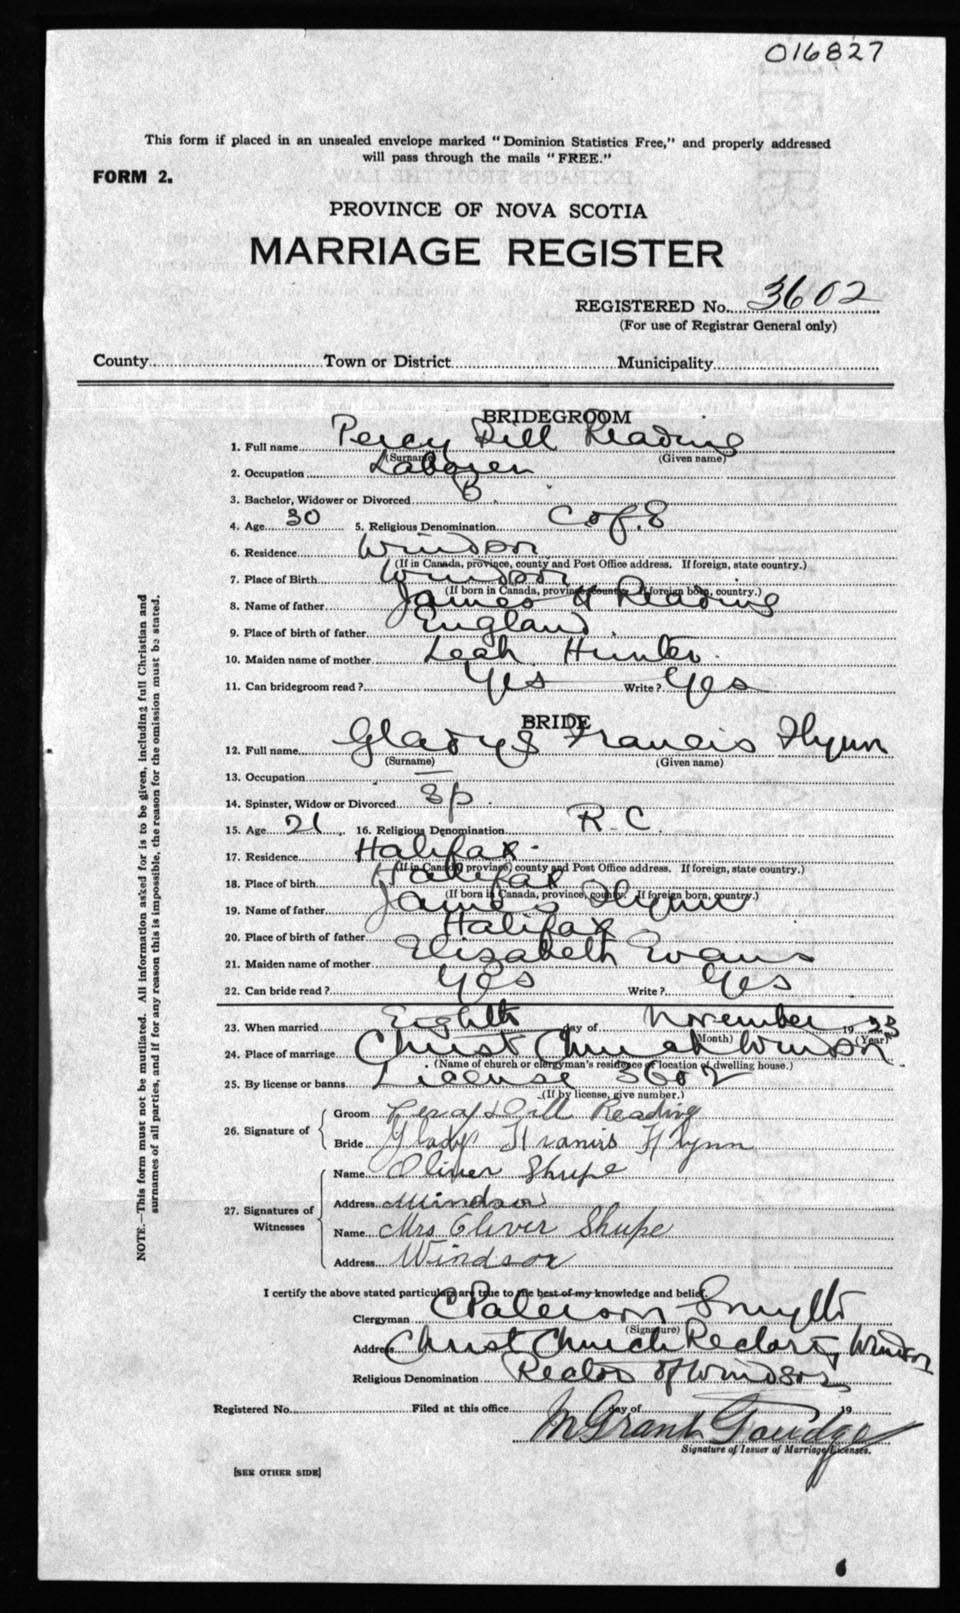 016827
This form if placed in an unsealed envelope marked "Dominion Statistics Free," and properly addressed
will pass through the mails "FREE."
FORM 2.
PROVINCE OF NOVA SCOTIA
MARRIAGE REGISTER
REGISTERED No. 3602
(For use of Registrar General only)
County Town or District Municipality
BRIDEGROOM
1. Full name Percy Dill Reading
(Surname) (Given name)
2. Occupation Laborer
3. Bachelor, Widower or Divorced B.
4. Age 30 5. Religious Denomination C of E
6. Residence Windsor
(If in Canada, province, county and Post Office address. If foreign, state country.)
7. Place of Birth Windsor
(If born in Canada, province, county. If foreign born, country.)
8. Name of father James H Reading
9. Place of birth of father England
10. Maiden name of mother Leah Hunter
11. Can bridegroom read? Yes Write? Yes
BRIDE
12. Full name Gladys Francis Flynn
(Surname) (Given name)
13. Occupation —
14. Spinster, Widow or Divorced Sp.
15. Age 21 16. Religious Denomination R. C.
17. Residence Halifax
(If in Canada, province, county and Post Office address. If foreign, state country.)
18. Place of birth Halifax
(If born in Canada, province, county. If foreign born, country.)
19. Name of father James Flynn
20. Place of birth of father Halifax
21. Maiden name of mother Elizabeth Evans
22. Can bride read? Yes Write? Yes
23. When married Eighth day of November 1923
(Month) (Year)
24. Place of marriage Christ Church Windsor
(Name of church or clergyman's residence or location of dwelling house.)
25. By license or banns License 3602
(If by license, give number.)
26. Signature of Groom Percy Dill Reading
Bride Gladys Francis Flynn
27. Signatures of Witnesses Name Oliver Shupe
Address Windsor
Name Mrs Oliver Shupe
Address Windsor
I certify the above stated particulars are true to the best of my knowledge and belief.
Clergyman Paterson Smyth
(Signature)
Address Christ Church Rectory, Windsor
Religious Denomination Rector of Windsor
Registered No. Filed at this office day of 19
M Grant Goudge
Signature of Issuer of Marriage Licenses.
[SEE OTHER SIDE]
NOTE.—This form must not be mutilated. All information asked for is to be given, including full Christian and
surnames of all parties, and if for any reason this is impossible, the reason for the omission must be stated.